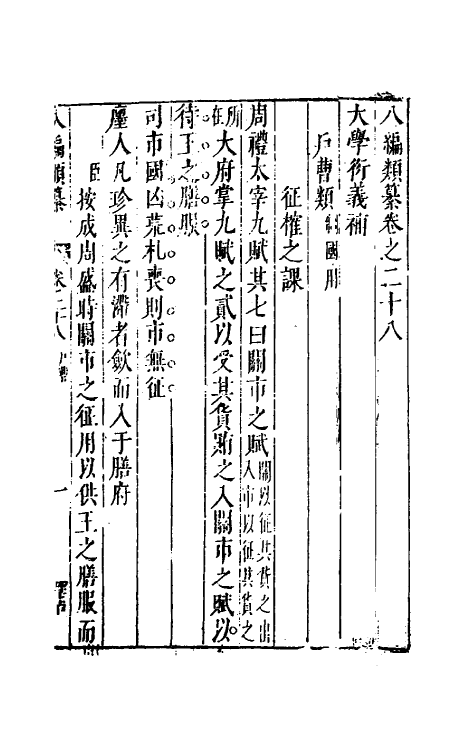 八編類纂卷之二十八
大學衍義補
戶曹類 制國用
征榷之課
周禮太宰九賦其七曰關市之賦 關以征其貨之出入市以征其貨之
所在
大府掌九賦之貳以受其貨賄之入關市之賦以
待王之膳服
司市國凶荒札喪則市無征
廛人凡珍異之有滯者歛而入于膳府
臣按成周盛時關市之征用以供王之膳服而
八編類纂 卷二十八 戶曹 一